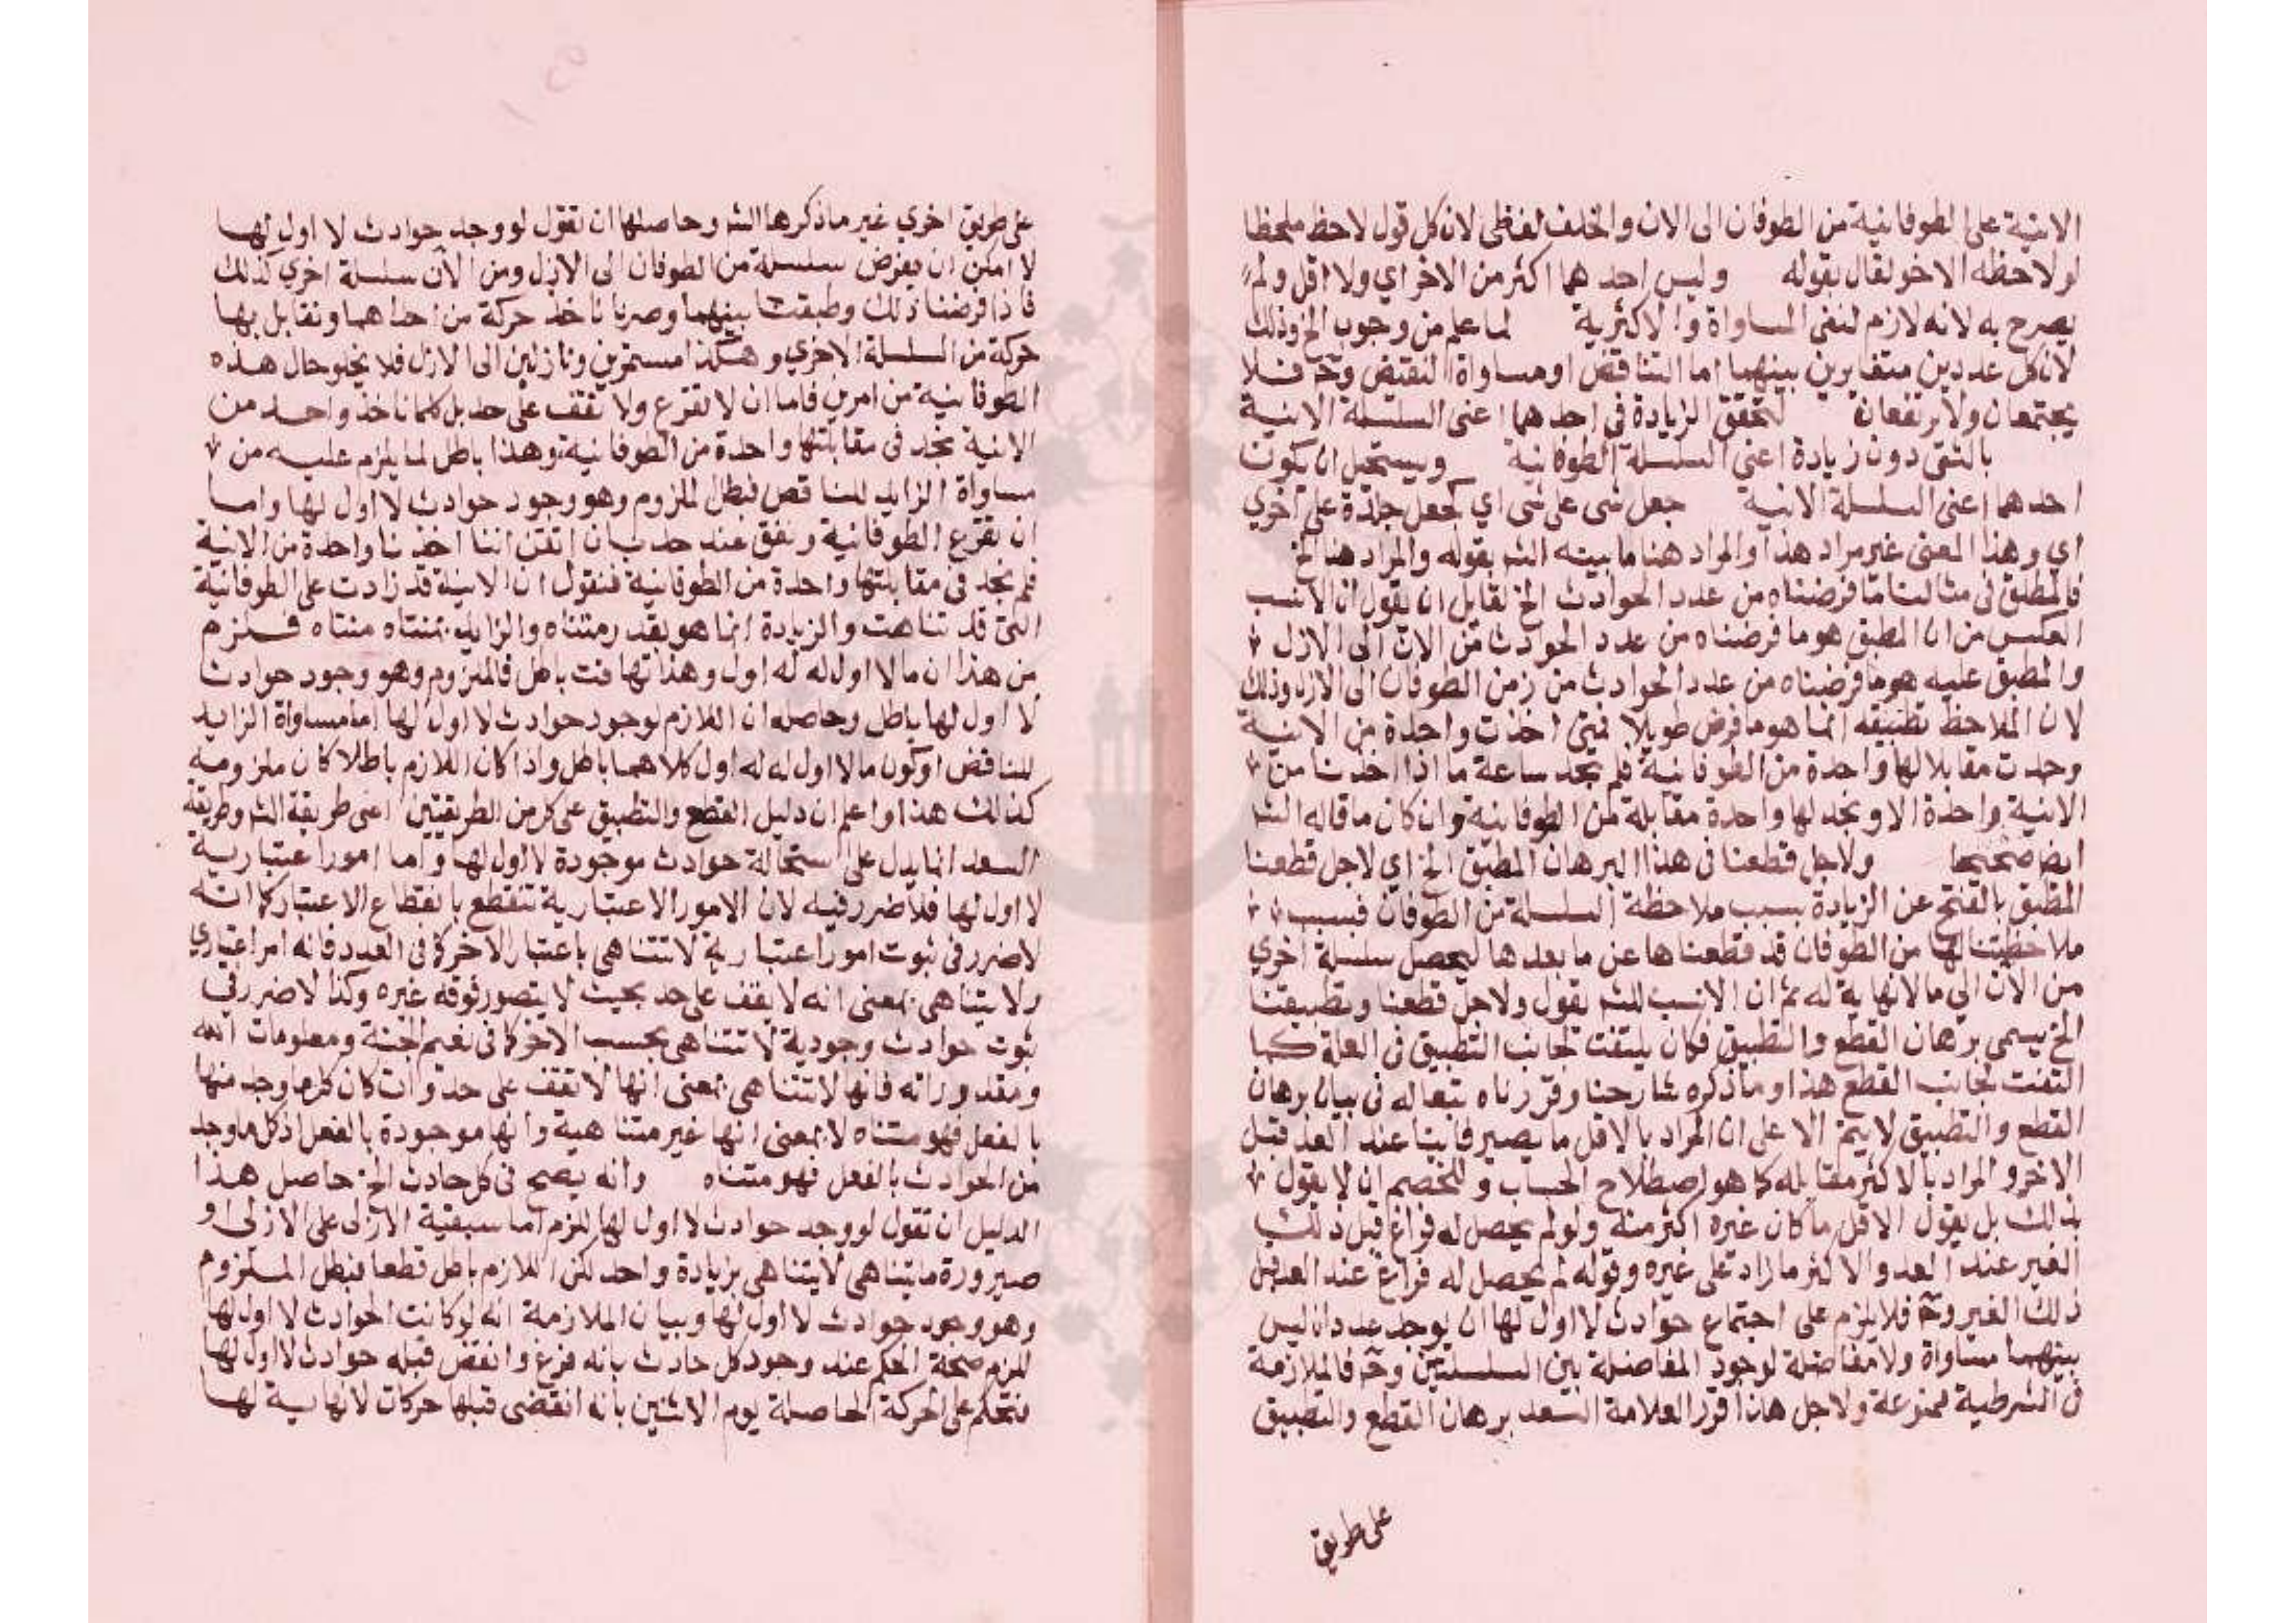 الانية على الطوفانية من الطوفان الى الان والخلف لفظى لان كل قول لاحظ ملحظا
لو لاحظه الاخر لقال بقوله وليس احدهما اكثر من الاخر اي ولا اقل ولم
يصرح به لانه لازم لنفى المساواة والاكثرية لما علم من وجوب الخ وذلك
لان كل عددين متغايرين بينهما اما التناقض او مساواة النقيض وح فلا
يجتمعان ولا يرتفعان لتحقق الزيادة في احدهما اعنى السلسلة الانية
بالشى دون زيادة اعنى السلسلة الطوفانية ويستحيل ان يكون
احدهما اعنى السلسلة الانية جعل شى على شى اي كجعل جلدة على اخري
اي وهذا المعنى غير مراد هذا والمراد هنا ما بينه الشه بقوله والمراد هنا الخ
فالمطبق فى مثالنا ما فرضناه من عدد الحوادث الخ لقايل ان يقول ان الانسب
العكس من ان المطبق هو ما فرضناه من عدد الحوادث من الان الى الازل
والمطبق عليه هو ما فرضناه من عدد الحوادث من زمن الطوفان الى الازل وذلك
لان الملاحظ تطبيقه انما هو ما فرض طويلا فمتى اخذت واحدة من الانية
وجدت مقابلا لها واحدة من الطوفانية فلم يجد ساعة ما اذا اخذنا من
الانية واحدة الا ونجد لها واحدة مقابلة من الطوفانية وان كان ما قاله الشه
ايض صحيحا ولاجل قطعنا فى هذا البرهان المطبق الخ اي لاجل قطعنا
المطبق بالفتح عن الزيادة بسبب ملاحظة السلسلة من الطوفان فبسبب
ملاحظتنا لها من الطوفان قد قطعناها عن ما بعدها ليحصل سلسلة اخري
من الان الي ما لا نهاية له ثم ان الانسب للشه يقول ولاجل قطعنا وتطبيقنا
الخ يسمى برهان القطع والتطبيق فكان يلتفت لجانب التطبيق فى العلة كما
التفت لجانب القطع هذا وما ذكره شارحنا وقررناه تبعا له فى بيان برهان
القطع والتطبيق لا يتم الا على ان المراد بالاقل ما يصير فانيا عند العد قبل
الاخر والمراد بالاكثر مقابله كما هو اصطلاح الحساب وللخصم ان لا يقول
بذلك بل يقول الاقل ما كان غيره اكثر منه ولو لم يحصل له فراغ قبل ذلك
الغير عند العد والاكثر ما زاد على غيره وقوله لم يحصل له فراغ عند العد قبل
ذلك الغير وح فلا يلزم على اجتماع حوادث لا اول لها ان يوجد عددان ليس
بينهما مساواة ولا مفاضلة لوجود المفاضلة بين السلسلتين وح فالملازمة
فى الشرطية ممنوعة ولاجل هذا قرر العلامة السعد برهان القطع والتطبيق
على طريق
على طريق اخري غير ما ذكرها الشه وحاصلها ان تقول لو وجد حوادث لا اول لها
لا امكن ان يفرض سلسلة من الطوفان الى الازل ومن الان سلسلة اخري كذلك
فاذا فرضنا ذلك وطبقت بينهما وصرنا ناخذ حركة من احداهما ونقابل بها
حركة من السلسلة الاخري وهكذا مستمرين ونازلين الى الازل فلا يخلو حال هذه
الطوفانية من امرين فاما ان لا تفرغ ولا تقف على حد بل كلما ناخذ واحد من
الانية نجد فى مقابلتها واحدة من الطوفانية وهذا باطل لما يلزم عليه من
مساواة الزايد للناقص فبطل الملزوم وهو وجود حوادث لا اول لها واما
ان تفرغ الطوفانية وتقف عند حد بان اتفق اننا اخذنا واحدة من الانية
فلم نجد فى مقابلتها واحدة من الطوفانية فنقول ان الانية قد زادت على الطوفانية
التى قد تناهت والزيادة انما هو بقدر متناه والزايد بمتناه متناه فلزم
من هذا ان ما لا اول له له اول وهذا تهافت باطل فالملزوم وهو وجود حوادث
لا اول لها باطل وحاصله ان اللازم لوجود حوادث لا اول لها اما مساواة الزايد
للناقص او كون ما لا اول له له اول كلاهما باطل واذا كان اللازم باطلا كان ملزومه
كذلك هذا واعلم ان دليل القطع والتطبيق على كل من الطريقتين اعنى طريقة الشه وطريقة
السعد انما يدل على استحالة حوادث موجودة لا اول لها واما امورا عتبارية
لا اول لها فلا ضرر فيه لان الامور الاعتبارية تنقطع بانقطاع الاعتبار كما انه
لا ضرر فى ثبوت امور اعتبارية لا تتناهى باعتبار الاخر كما فى العدد فانه امر اعتباري
ولا يتناهى بمعنى انه لا يقف على حد بحيث لا يتصور فوقه غيره وكذا لا ضرر في
ثبوت حوادث وجودية لا تتناهى بحسب الاخر كما فى نعيم الجنة ومعلومات الله
ومقدوراته فانها لا تتناهى بمعنى انها لا تقف على حد وان كان كل ما وجد منها
بالفعل فهو متناه لا بمعنى انها غير متناهية وانها موجودة بالفعل اذ كل ما وجد
من الحوادث بالفعل فهو متناه وانه يصح فى كل حادث الخ حاصل هذا
الدليل ان تقول لو وجد حوادث لا اول لها للزم اما سبقية الازلى على الازلى او
صيرورة ما يتناهى لا يتناهى بزيادة واحد لكن اللازم باطل قطعا فبطل الملزوم
وهو وجود حوادث لا اول لها وبيان الملازمة انه لو كانت الحوادث لا اول لها
للزم صحة الحكم عند وجود كل حادث بانه فرغ وانقضى قبله حوادث لا اول لها
فنحكم على الحركة الحاصلة يوم الاثنين بانه انقضى قبلها حركات لا نهاية لها